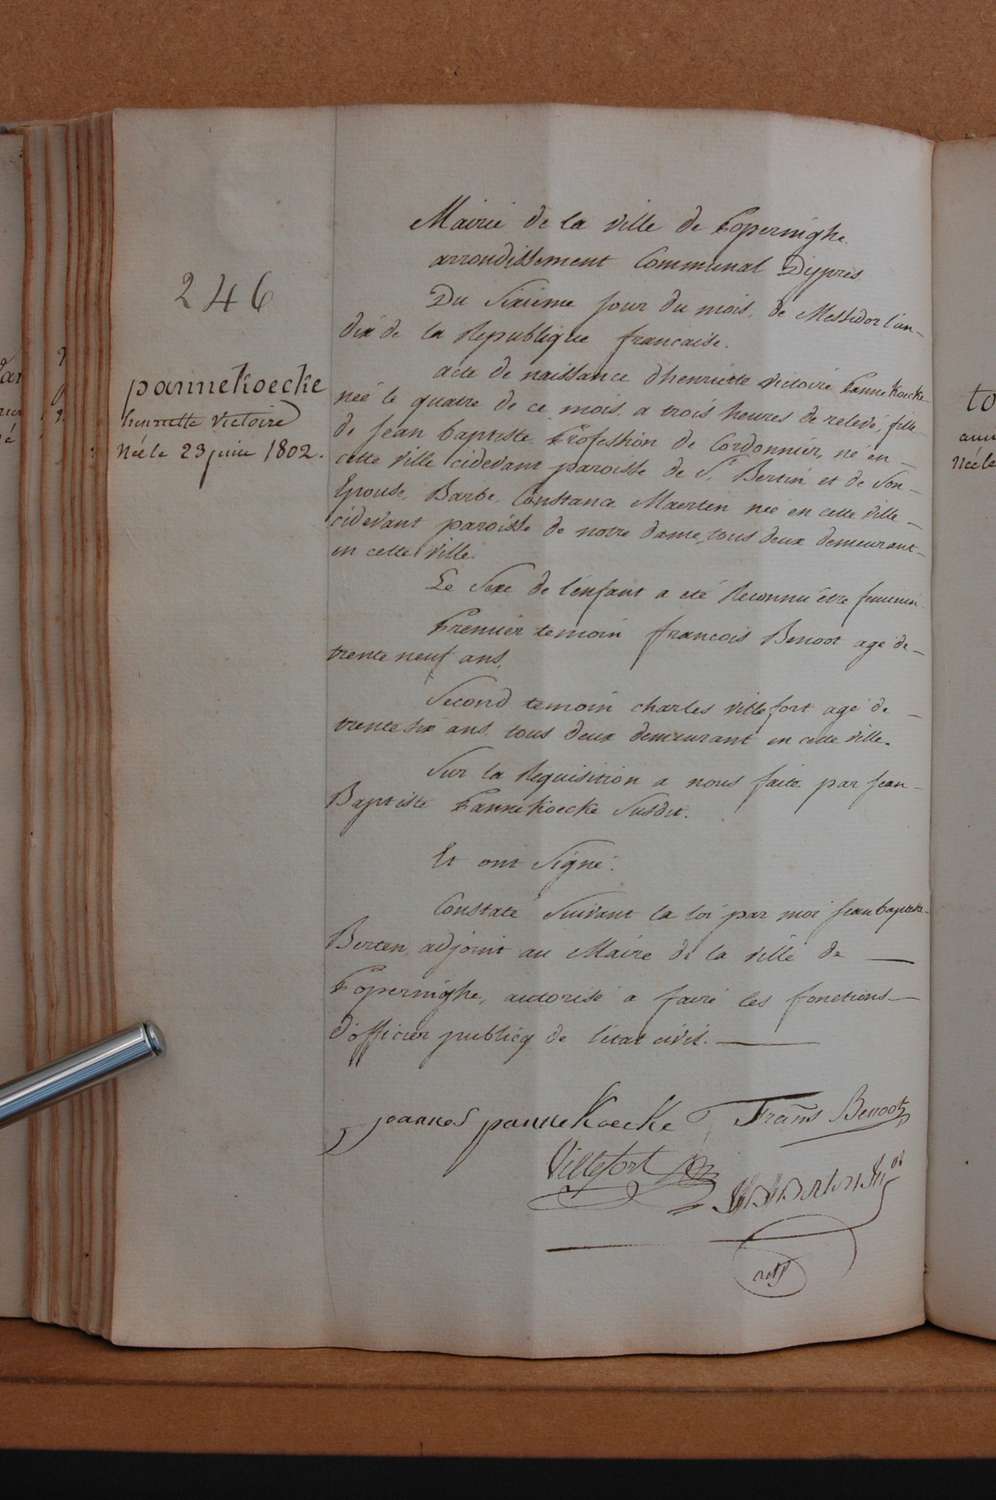 246
pannekoecke
henriette victoire
Néé le 23 juin 1802.
Mairie de la ville de Poperinghe
arrondissement Communal D'ypres
Du Sixieme jour du mois de Messidor l'an
dix de la Republique francaise.
acte de naissance d'henriette victoire Pannekoecke
néé le quatre de ce mois a trois heures de relevé, fille
de Jean baptiste Profeshion de Cordonnier, né en
cette ville cidevant paroisse de St Bertin et de Son
Epouse Barbe Constance Maerten née en cette ville
cidevant paroisse de notre dame, tous deux demeurant
en cette ville.
Le Sexe de l'enfant a été Reconnu être feminin
Premier temoin francois Benoot agé de
trente neuf ans.
Second temoin charles villefort agé de
trente six ans tous deux demeurant en cette ville.
Sur la Requisition a nous faite par Jean
Baptiste Pannekoecke Susdit.
Et ont Signé.
Constaté Suivant la loi par moi Jean baptiste
Berten, adjoint au Maire de la ville de
Poperinghe, autorisé a faire les fonctions
d'officier publicq de l'état civil.
joannes pannekoecke Frans Benoot
Villefort